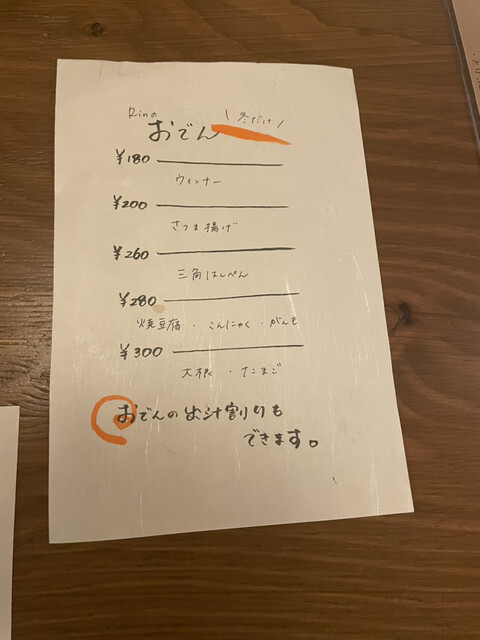 Rinの
おでん \冬だけ/
¥180
ウインナー
¥200
さつま揚げ
¥260
三角はんぺん
¥280
焼豆腐・こんにゃく・がんも
¥300
大根・たまご
おでんの出汁割りも
できます。